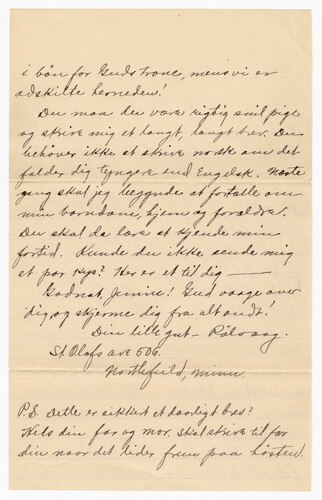 i bön for Guds trone, mens vi er
adskilte herneden!
Du maa du være rigtig snil pige
og skrive mig et langt, langt brev. Du
behøver ikke at skrive norsk om det
falder dig tyngere end Engelsk. Næste
gang skal jeg begynde at fortælle om
min barndom, hjem og forældre.
Du skal da lære at kjende min
fortid. Kunde du ikke sende mig
et par kys? Her er et til dig —
Godnat, Jennie! Gud vaage over
dig og skjerme dig fra alt ondt!
Din lille gut – Rölvaag.
St. Olafs ave 506.
Northfield, Minn.
P.S. Dette er sikkert et daarligt brev?
Hils din far og mor. Skal skrive til far
din naar det lider frem paa høsten.